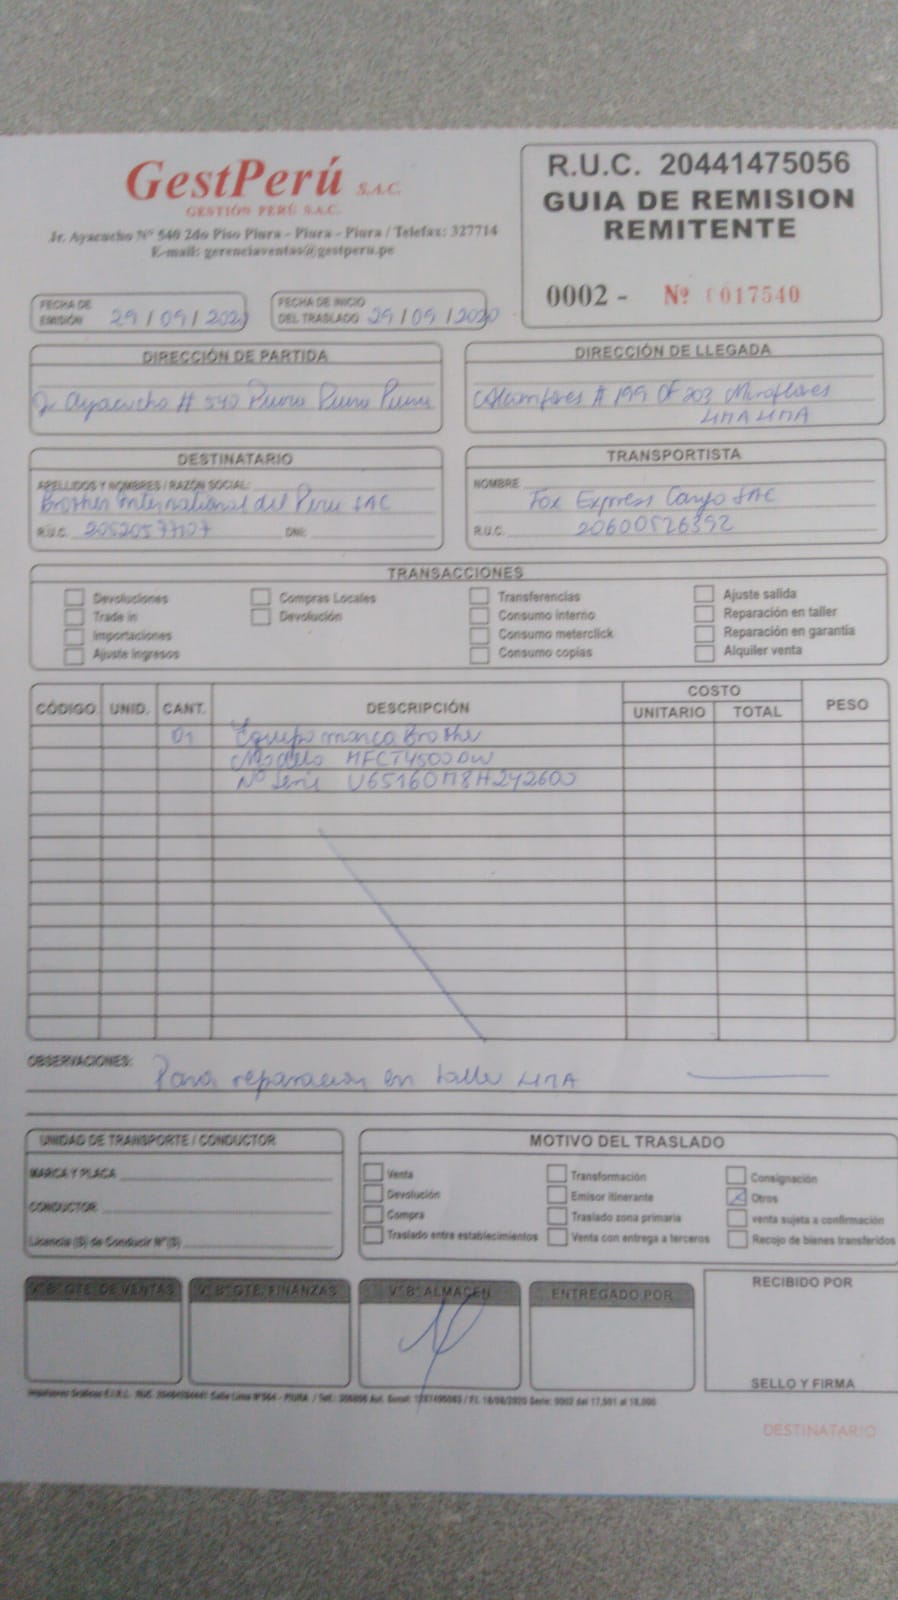 GestPerú S.A.C.
GESTIÓN PERÚ S.A.C.
Jr. Ayacucho Nº 540 2do Piso Piura - Piura - Piura / Telefax: 327714
E-mail: gerenciaventas@gestperu.pe
R.U.C. 20441475056
GUIA DE REMISION
REMITENTE
0002 - Nº 017540
FECHA DE EMISIÓN 29 / 09 / 2020
FECHA DE INICIO DEL TRASLADO 29 / 09 / 2020
DIRECCIÓN DE PARTIDA
Jr Ayacucho # 540 Piura Piura Piura
DIRECCIÓN DE LLEGADA
# 199 Of 203 Miraflores
LIMA LIMA
DESTINATARIO
APELLIDOS Y NOMBRES / RAZÓN SOCIAL:
Brother International del Peru SAC
R.U.C. 20520577107 DNI:
TRANSPORTISTA
NOMBRE Fox Express Cargo SAC
R.U.C. 20600526392
TRANSACCIONES
Devoluciones
Trade in
Importaciones
Ajuste ingresos
Compras Locales
Devolución
Transferencias
Consumo interno
Consumo meterclick
Consumo copias
Ajuste salida
Reparación en taller
Reparación en garantía
Alquiler venta
CÓDIGO UNID. CANT. DESCRIPCIÓN COSTO UNITARIO TOTAL PESO
01 Equipo marca Brother
Modelo MFCT4500DW
Nº Serie U65160M8H242600
OBSERVACIONES: Para reparacion en taller LIMA
UNIDAD DE TRANSPORTE / CONDUCTOR
MARCA Y PLACA
CONDUCTOR
Licencia (S) de Conducir Nº(S)
MOTIVO DEL TRASLADO
Venta
Devolución
Compra
Traslado entre establecimientos
Transformación
Emisor itinerante
Traslado zona primaria
Venta con entrega a terceros
Consignación
Otros
venta sujeta a confirmación
Recojo de bienes transferidos
Vº Bº GTE. DE VENTAS
Vº Bº GTE. FINANZAS
Vº Bº ALMACEN
ENTREGADO POR
RECIBIDO POR
SELLO Y FIRMA
Serie: 0002 del 17,501 al 18,000
DESTINATARIO